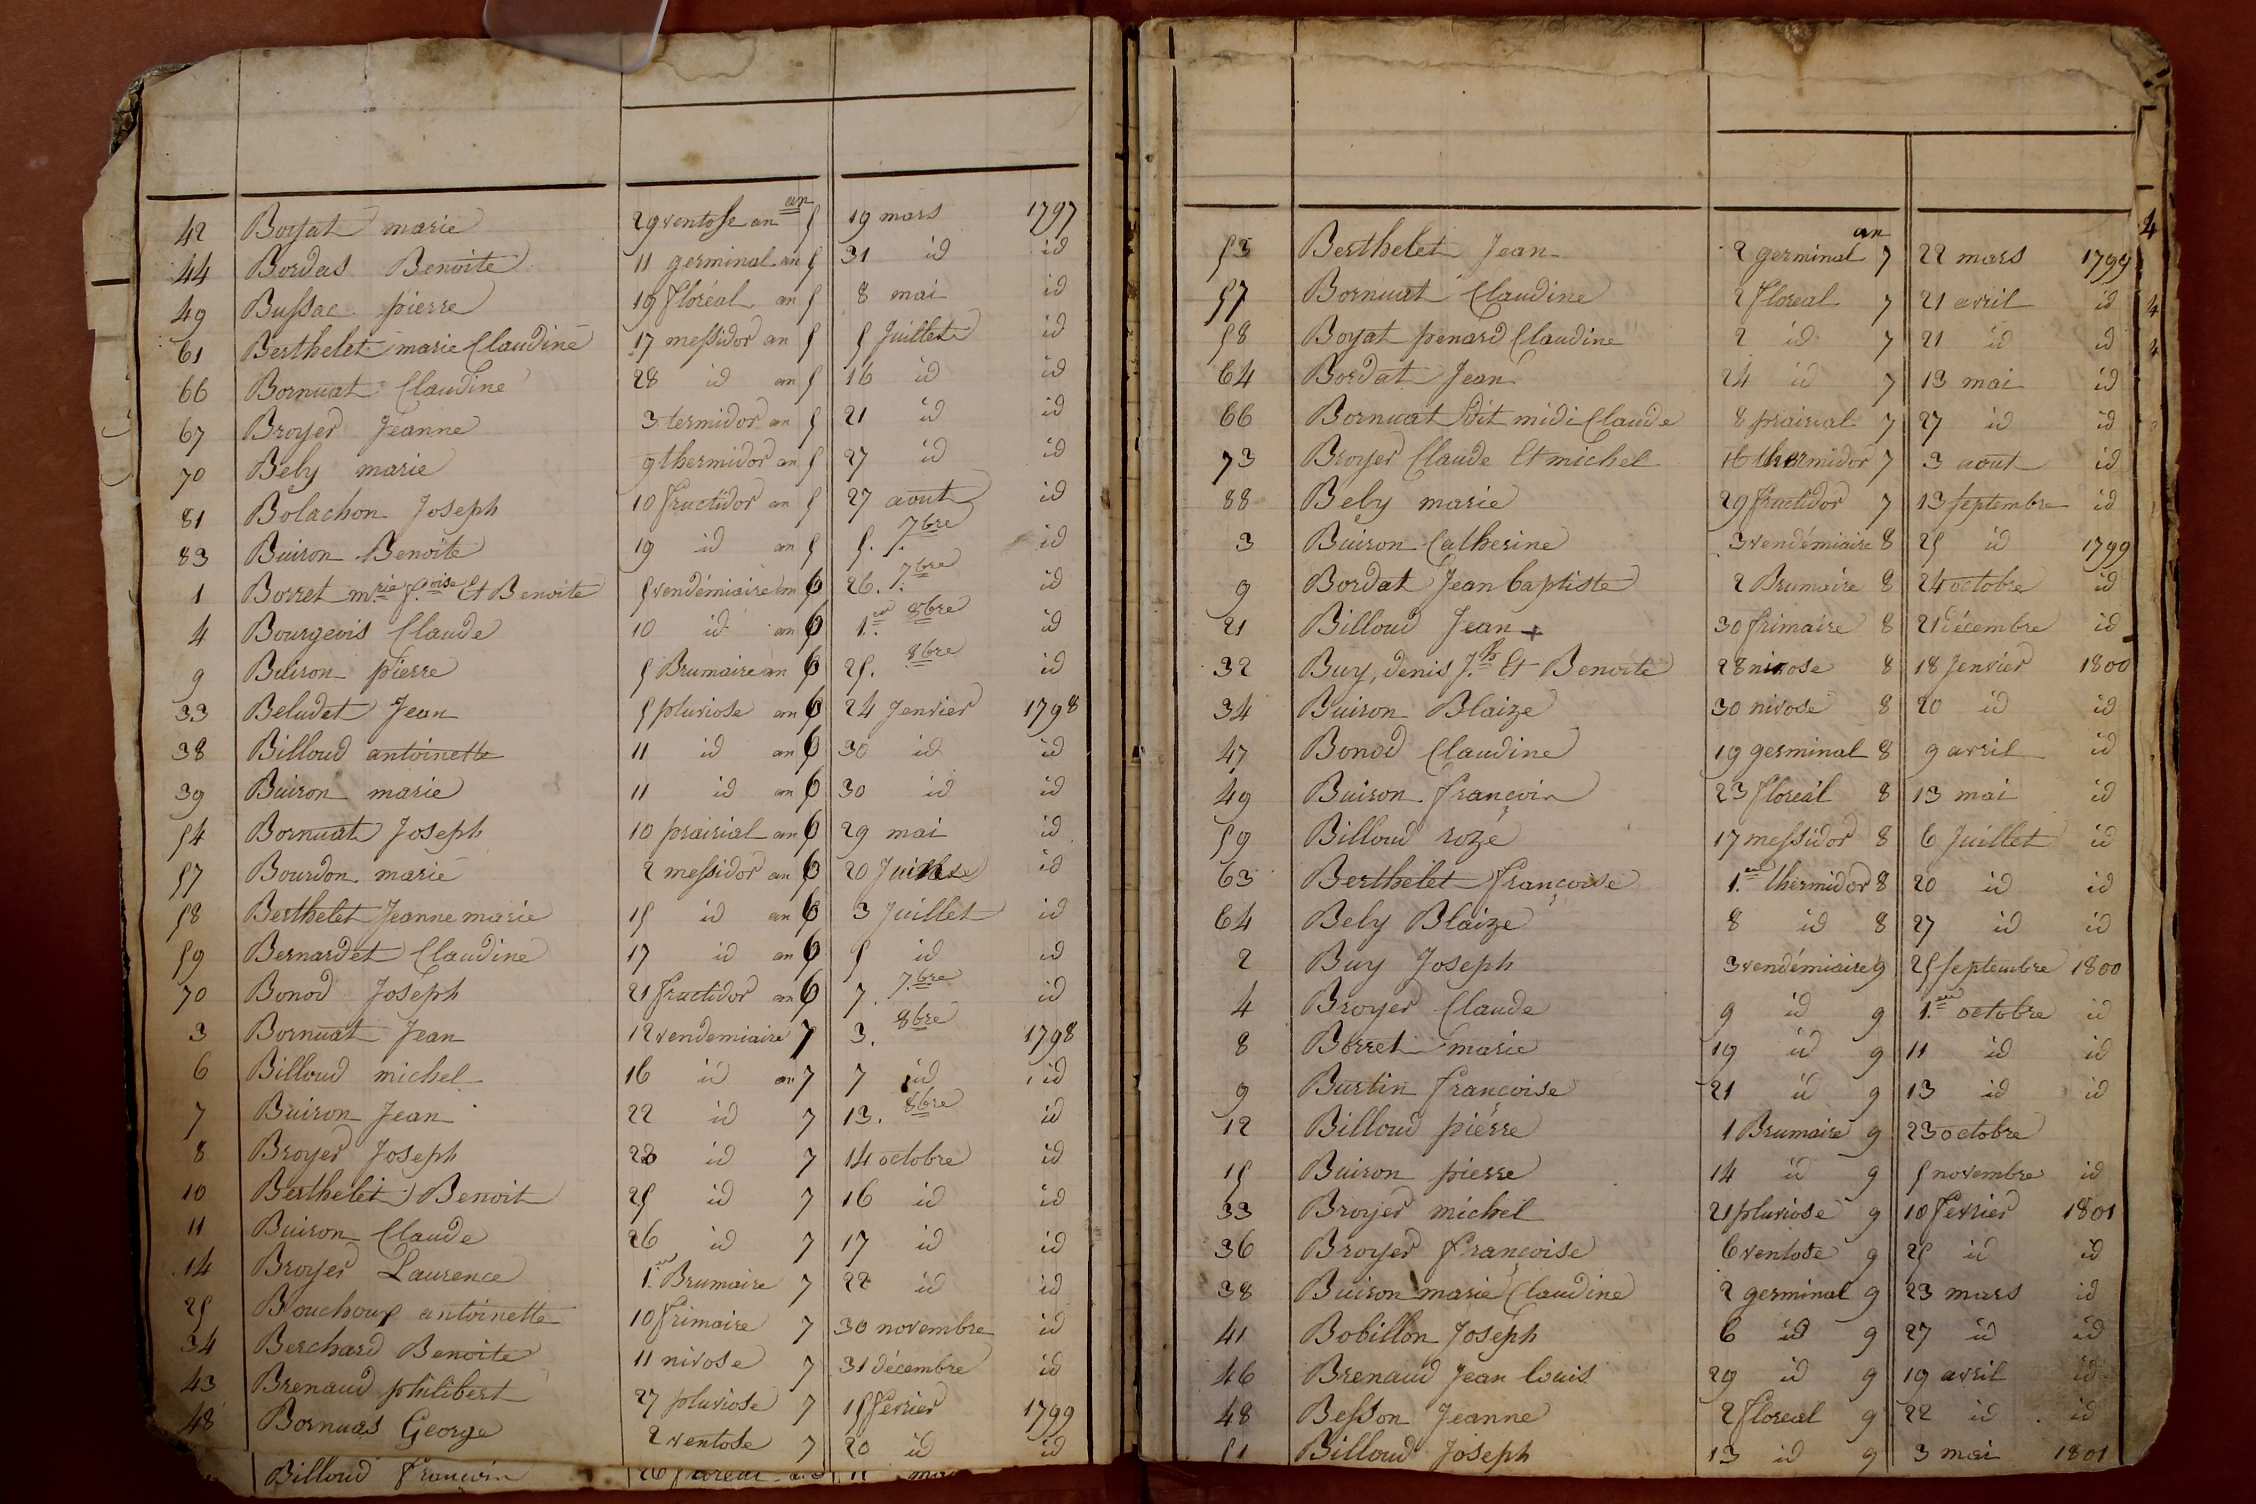 an
42 Boyat marie 29 ventose an 5 19 mars 1797
44 Bordas Benoite 11 germinal an 5 31 id id
49 Bussac pierre 19 floréal an 5 8 mai id
61 Berthelet marie Claudine 17 messidor an 5 5 Juillet id
66 Bornuat Claudine 28 id an 5 16 id id
67 Broyer Jeanne 3 termidor an 5 21 id id
70 Bely marie 9 thermidor an 5 27 id id
81 Bolachon Joseph 10 fructidor an 5 27 aout id
83 Buiron Benoite 19 id an 5 5. 7bre id
1 Borret mrie f.oise Et Benoite 5 vendémiaire an 6 26. 7bre id
4 Bourgeois Claude 10 id an 6 1.er 8bre id
9 Buiron pierre 5 Brumaire an 6 25. 8bre id
33 Beludet Jean 5 pluviose an 6 24 Jenvier 1798
38 Billoud antoinette 11 id an 6 30 id id
39 Buiron marie 11 id an 6 30 id id
54 Bornuat Joseph 10 prairial an 6 29 mai id
57 Bourdon marie 2 messidor an 6 20 id
58 Berthelet Jeanne marie 15 id an 6 3 Juillet id
59 Bernardet Claudine 17 id an 6 5 id id
70 Bonod Joseph 21 fructidor an 6 7. 7bre id
3 Bornuat Jean 12 vendemiaire 7 3. 8bre 1798
6 Billoud michel 16 id an 7 7 id id
7 Buiron Jean 22 id 7 13. 8bre id
8 Broyer Joseph 23 id 7 14 octobre id
10 Berthelet Benoit 25 id 7 16 id id
11 Buiron Claude 26 id 7 17 id id
14 Broyer Laurence 1.er Brumaire 7 22 id id
25 Bouchoux antoinette 10 frimaire 7 30 novembre id
34 Berchard Benoite 11 nivose 7 31 décembre id
43 Brenaud philibert 27 pluviose 7 15 fevrier 1799
48 Bornuas George 2 ventose 7 20 id id
Billoud francoin 26
an
53 Berthelet Jean 2 germinal 7 22 mars 1799
57 Bornuat Claudine 2 floreal 7 21 avril id
58 Boyat penard Claudine 2 id 7 21 id id
64 Bordat Jean 24 id 7 13 mai id
66 Bornuat dit midi Claude 8 prairial 7 27 id id
73 Broyer Claude Et michel 16 thermidor 7 3 aout id
88 Bely marie 29 fructidor 7 13 septembre id
3 Buiron Catherine 3 vendémiaire 8 25 id 1799
9 Bordat Jean baptiste 2 Brumaire 8 24 octobre id
21 Billoud Jean + 30 frimaire 8 21 décembre id
32 Buy, denis J.h Et Benoite 28 nivose 8 18 Jenvier 1800
34 Buiron Blaize 30 nivose 8 20 id id
47 Bonod Claudine 19 germinal 8 9 avril id
49 Buiron françoin 23 floreal 8 13 mai id
59 Billoud roze 17 messidor 8 6 Juillet id
63 Berthelet françoise 1.er thermidor 8 20 id id
64 Bely Blaize 8 id 8 27 id id
2 Buy Joseph 3 vendémiaire 9 25 septembre 1800
4 Broyer Claude 9 id 9 1.er octobre id
8 Borret marie 19 id 9 11 id id
9 Burtin françoise 21 id 9 13 id id
12 Billoud pierre 1 Brumaire 9 23 octobre
15 Buiron pierre 14 id 9 5 novembre id
33 Broyer michel 21 pluviose 9 10 fevrier 1801
36 Broyer françoise 6 ventose 9 25 id id
38 Buiron marie Claudine 2 germinal 9 23 mars id
41 Bobillon Joseph 6 id 9 27 id id
46 Brenaud Jean Louis 29 id 9 19 avril id
48 Besson Jeanne 2 floreal 9 22 id id
51 Billoud Joseph 13 id 9 3 mai 1801
4
4
4